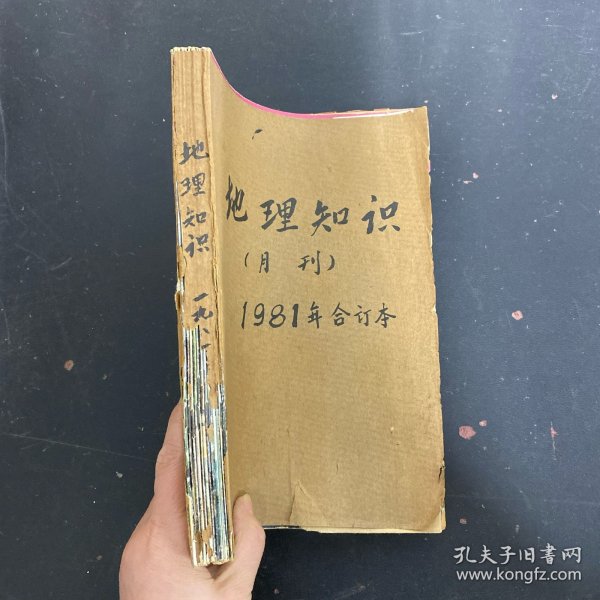 地理知识
一九八一
地理知识
(月刊)
1981年合订本
孔夫子旧书网
www.kongfz.com